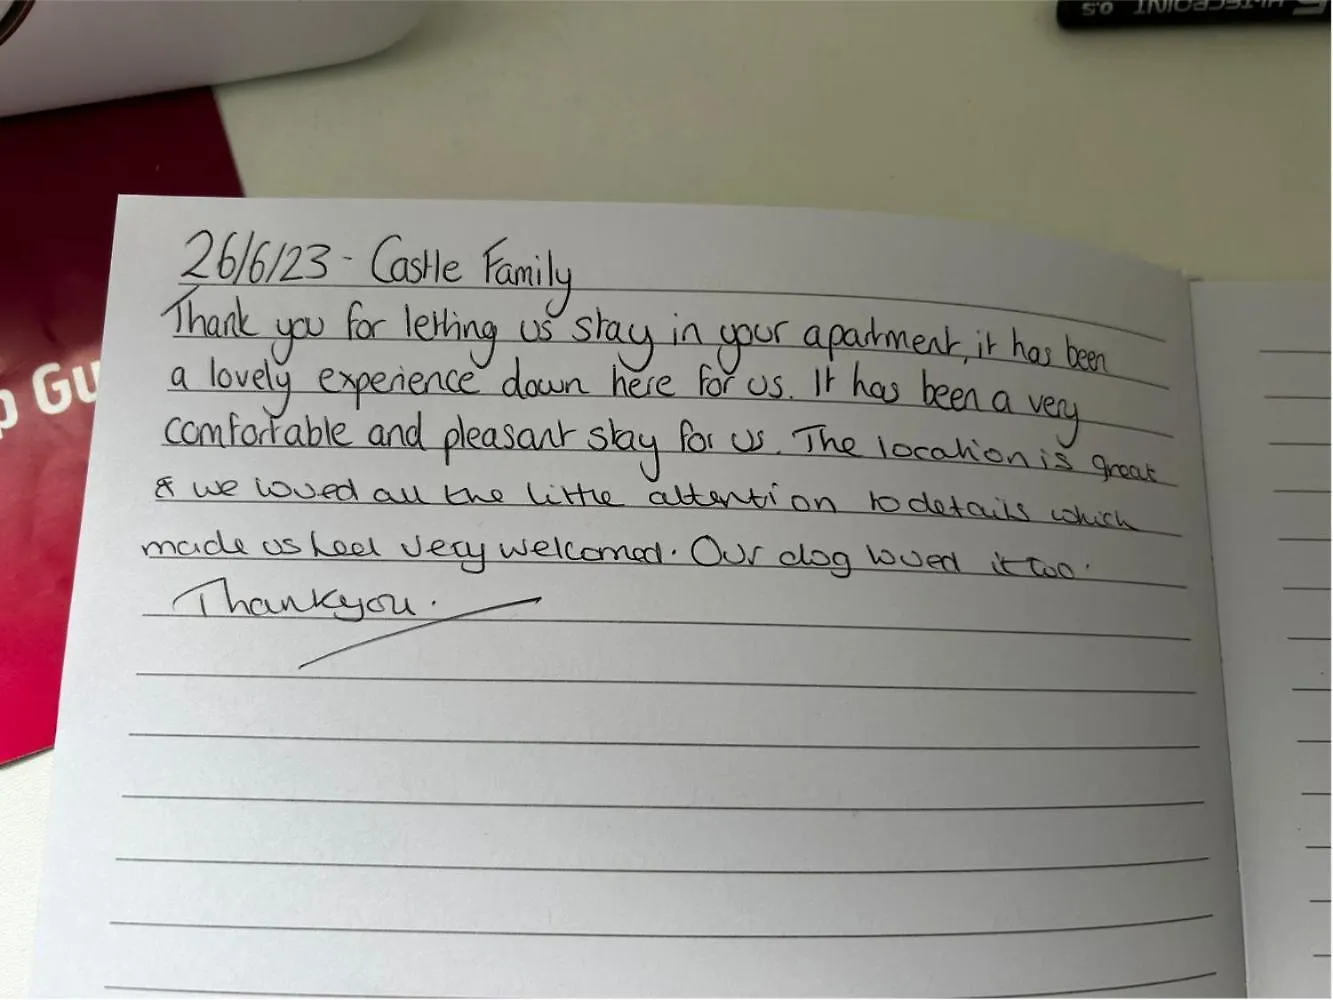 HI-TECPOINT 0.5
p Gu
26/6/23 - Castle Family
Thank you for letting us stay in your apartment, it has been
a lovely experience down here for us. It has been a very
comfortable and pleasant stay for us. The location is great
& we loved all the little attention to details which
made us feel very welcomed. Our dog loved it too.
Thankyou.